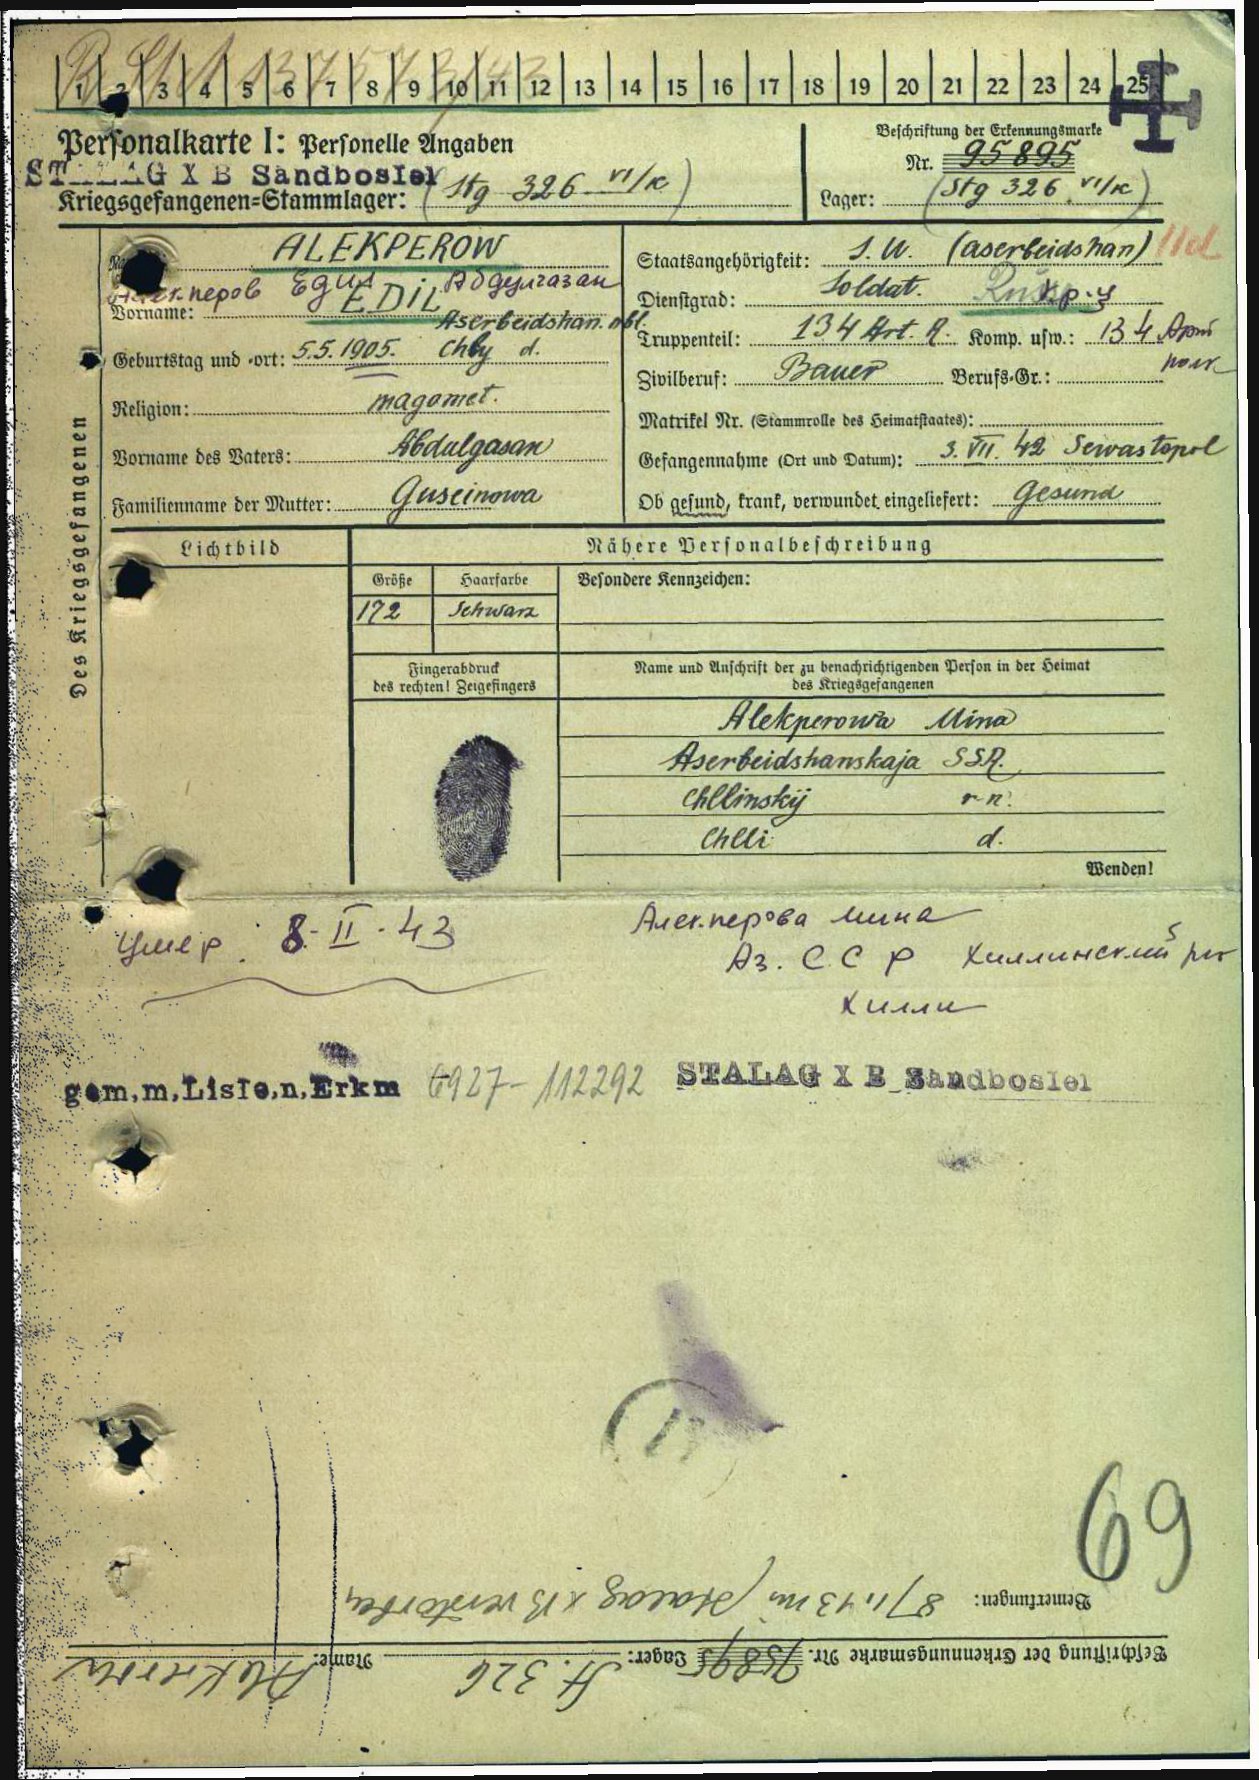 1 2 3 4 5 6 7 8 9 10 11 12 13 14 15 16 17 18 19 20 21 22 23 24 25
Personalkarte I: Personelle Angaben
Beschriftung der Erkennungsmarke
Nr. 95895
STALAG X B Sandbostel
Kriegsgefangenen-Stammlager: (Stg 326 VI/K)
Lager: (Stg 326 VI/K)
Des Kriegsgefangenen
ALEKPEROW
Алекперов Едил Абдулгазан
Vorname: EDIL
Aserbeidshan. obl.
Geburtstag und -ort: 5.5.1905. Chly d.
Religion: magomet.
Vorname des Vaters: Abdulgasan
Familienname der Mutter: Guseinowa
Staatsangehörigkeit: S.U. (aserbeidshan)
Dienstgrad: Soldat. кр-ц
Truppenteil: 134 Art. R. Komp. usw.: 134 Арт
полк
Zivilberuf: Bauer Berufs-Gr.:
Matrikel Nr. (Stammrolle des Heimatstaates):
Gefangennahme (Ort und Datum): 3. VII. 42 Sewastopol
Ob gesund, krank, verwundet eingeliefert: Gesund
Lichtbild
Nähere Personalbeschreibung
Größe Haarfarbe Besondere Kennzeichen:
172 Schwarz
Fingerabdruck
des rechten! Zeigefingers
Name und Anschrift der zu benachrichtigenden Person in der Heimat
des Kriegsgefangenen
Alekperowa Mina
Aserbeidshanskaja SSR.
Chllinskij r-n.
Chlli d.
Wenden!
Умер. 8-II-43
Алекперова Мина
Аз. ССР Хиллинский р-н
Хилли
gem.m.Liste.n.Erkm 6927-112292 STALAG X B Sandbostel
69
Bemerkungen: 8/II.43 im Stalag X B verstorben
Beschriftung der Erkennungsmarke Nr. 95895 Lager: St. 326 Name: Alekperow